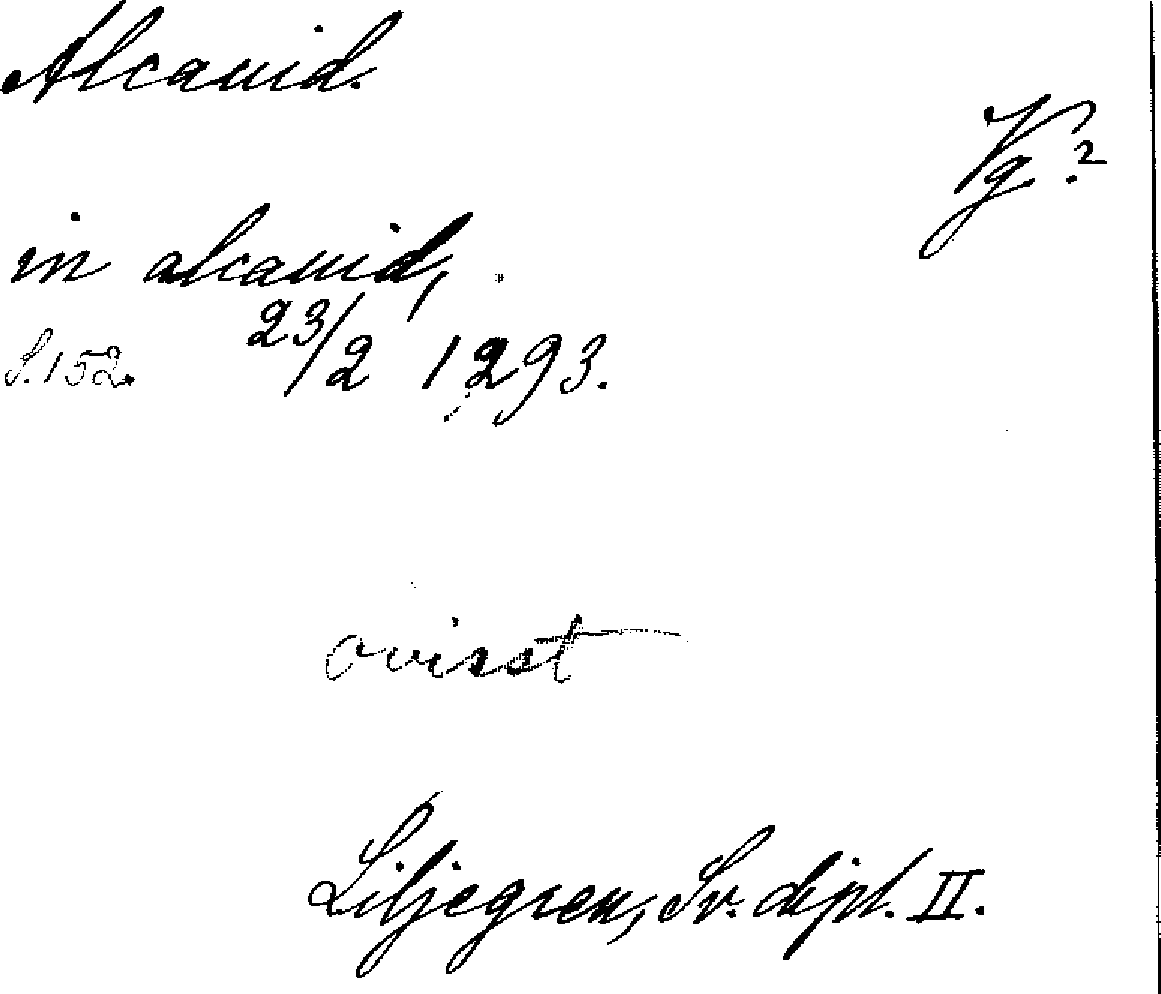 Alcauid.
Vg.?
in alcauid,
S. 152. 23/2 1293.
ovisst
Liljegren, Sv. dipl. II.